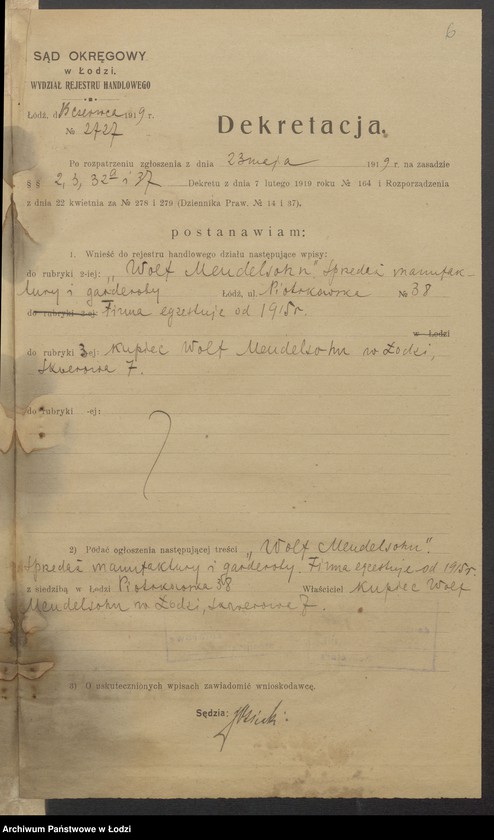 6
SĄD OKRĘGOWY
w Łodzi.
WYDZIAŁ REJESTRU HANDLOWEGO
Łódź, d. 13 czerwca 1919 r.
№ 2727
Dekretacja.
Po rozpatrzeniu zgłoszenia z dnia 23 maja 1919 r. na zasadzie
§ § 2, 3, 32a i 37 Dekretu z dnia 7 lutego 1919 roku № 164 i Rozporządzenia
z dnia 22 kwietnia za № 278 i 279 (Dziennika Praw. № 14 i 37).
postanawiam:
1. Wnieść do rejestru handlowego działu następujące wpisy:
do rubryki 2-iej: „Wolf Mendelsohn". Sprzedaż manufak-
tury i garderoby Łódź, ul. Piotrkowska № 38
do rubryki 2-ej: Firma egzystuje od 1915 r.
w Łodzi
do rubryki 3-ej: Kupiec Wolf Mendelsohn w Łodzi,
Skwerowa 7.
do rubryki -ej:
2) Podać ogłoszenia następującej treści „Wolf Mendelsohn".
Sprzedaż manufaktury i garderoby. Firma egzystuje od 1915 r.
z siedzibą w Łodzi Piotrkowska 38 Właściciel Kupiec Wolf
Mendelsohn w Łodzi, Skwerowa 7.
3) O uskutecznionych wpisach zawiadomić wnioskodawcę.
Sędzia:
Archiwum Państwowe w Łodzi